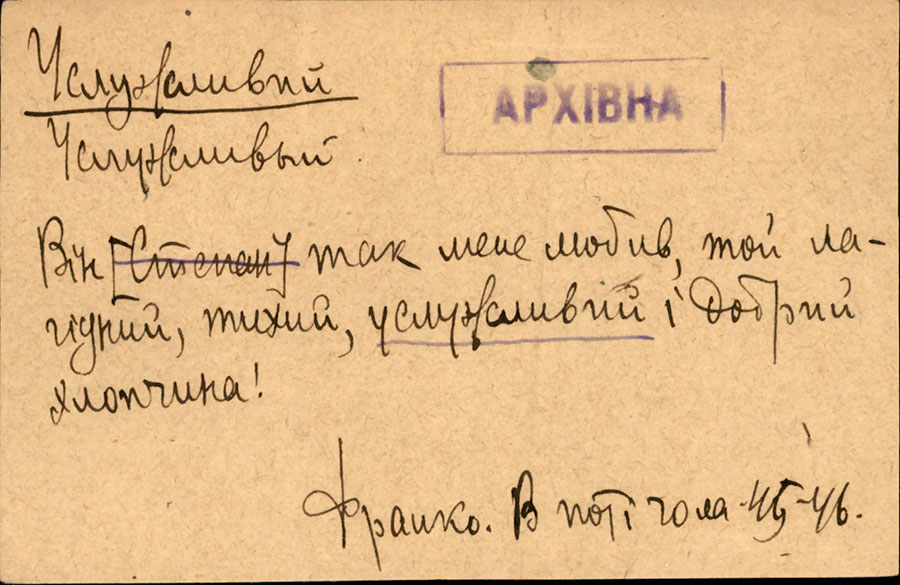 Услужливий
АРХІВНА
Услужливый
Він [Степан] так мене любив, той ла-
гідний, тихий, услужливий і добрий
хлопчина!
Франко. В поті чола 45-46.